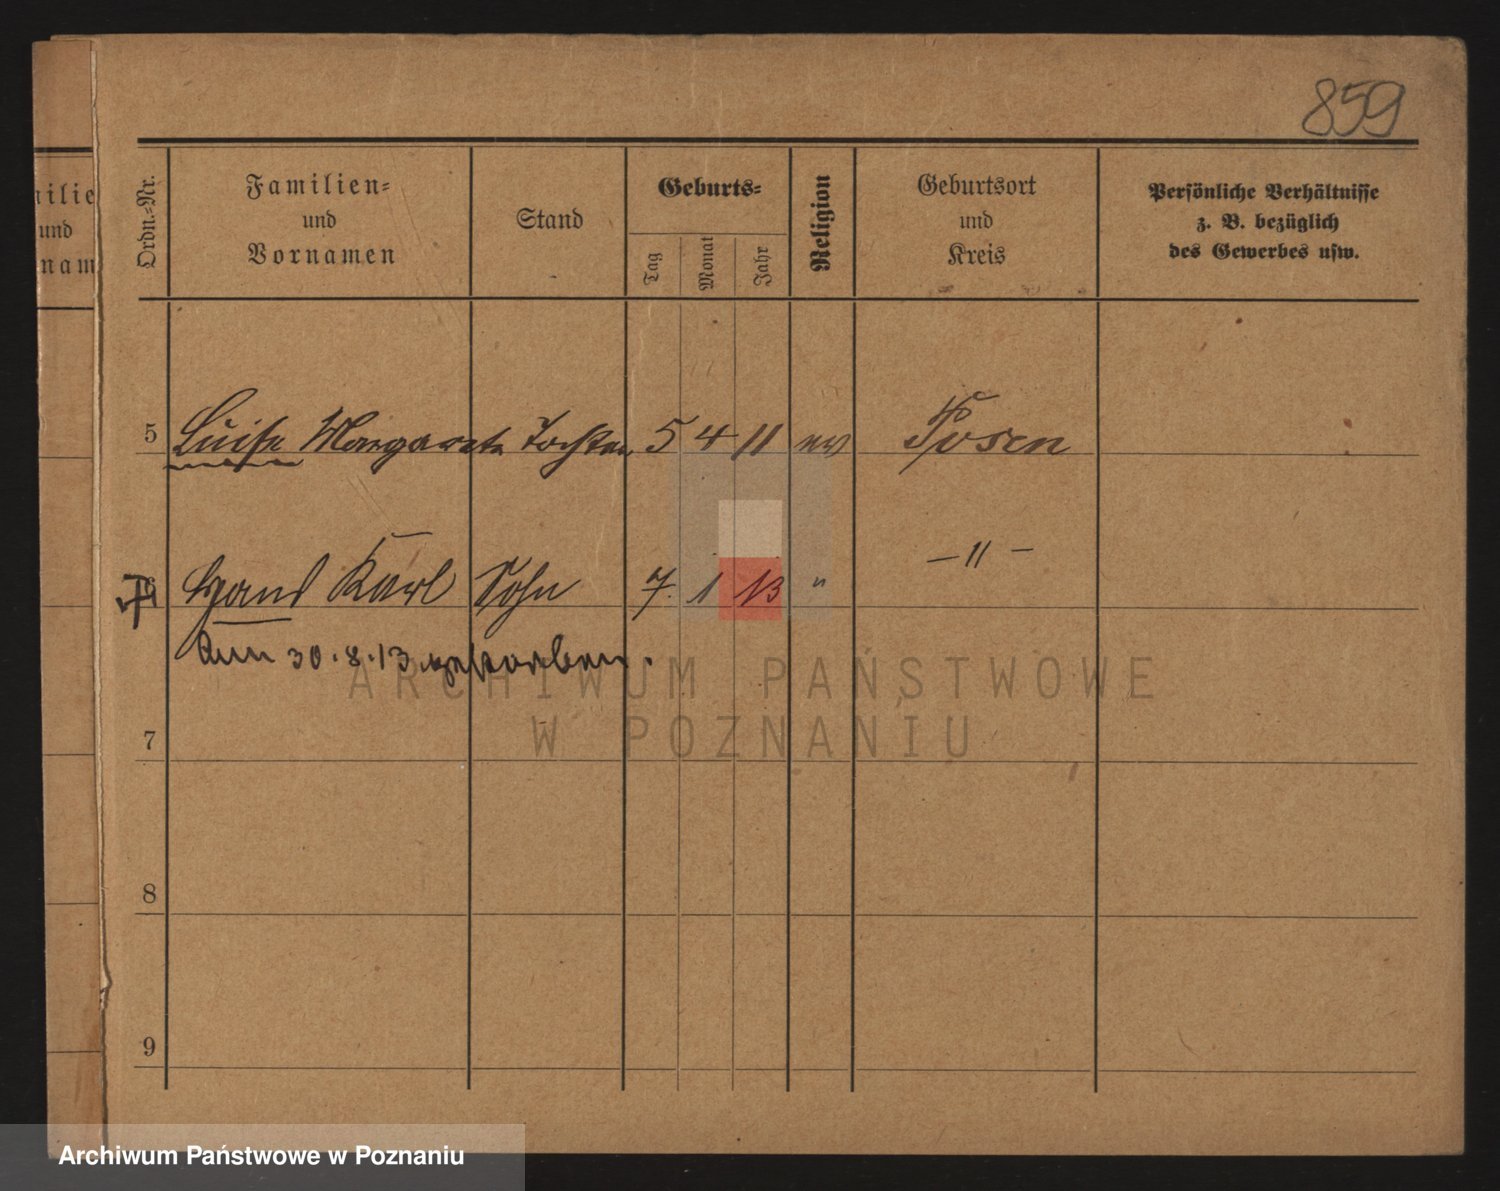 859
Ordn.-Nr.
Familien-
und
Vornamen
Stand
Geburts-
Tag
Monat
Jahr
Religion
Geburtsort
und
Kreis
Persönliche Verhältnisse
z. B. bezüglich
des Gewerbes usw.
ilie
und
nam
5 Luise Margarete Tochter 5 4 11 ev Posen
6 Hans Karl Sohn 7. 1 13 " — 11 —
Am 30.8.13 gestorben.
7
8
9
ARCHIWUM PAŃSTWOWE
W POZNANIU
Archiwum Państwowe w Poznaniu